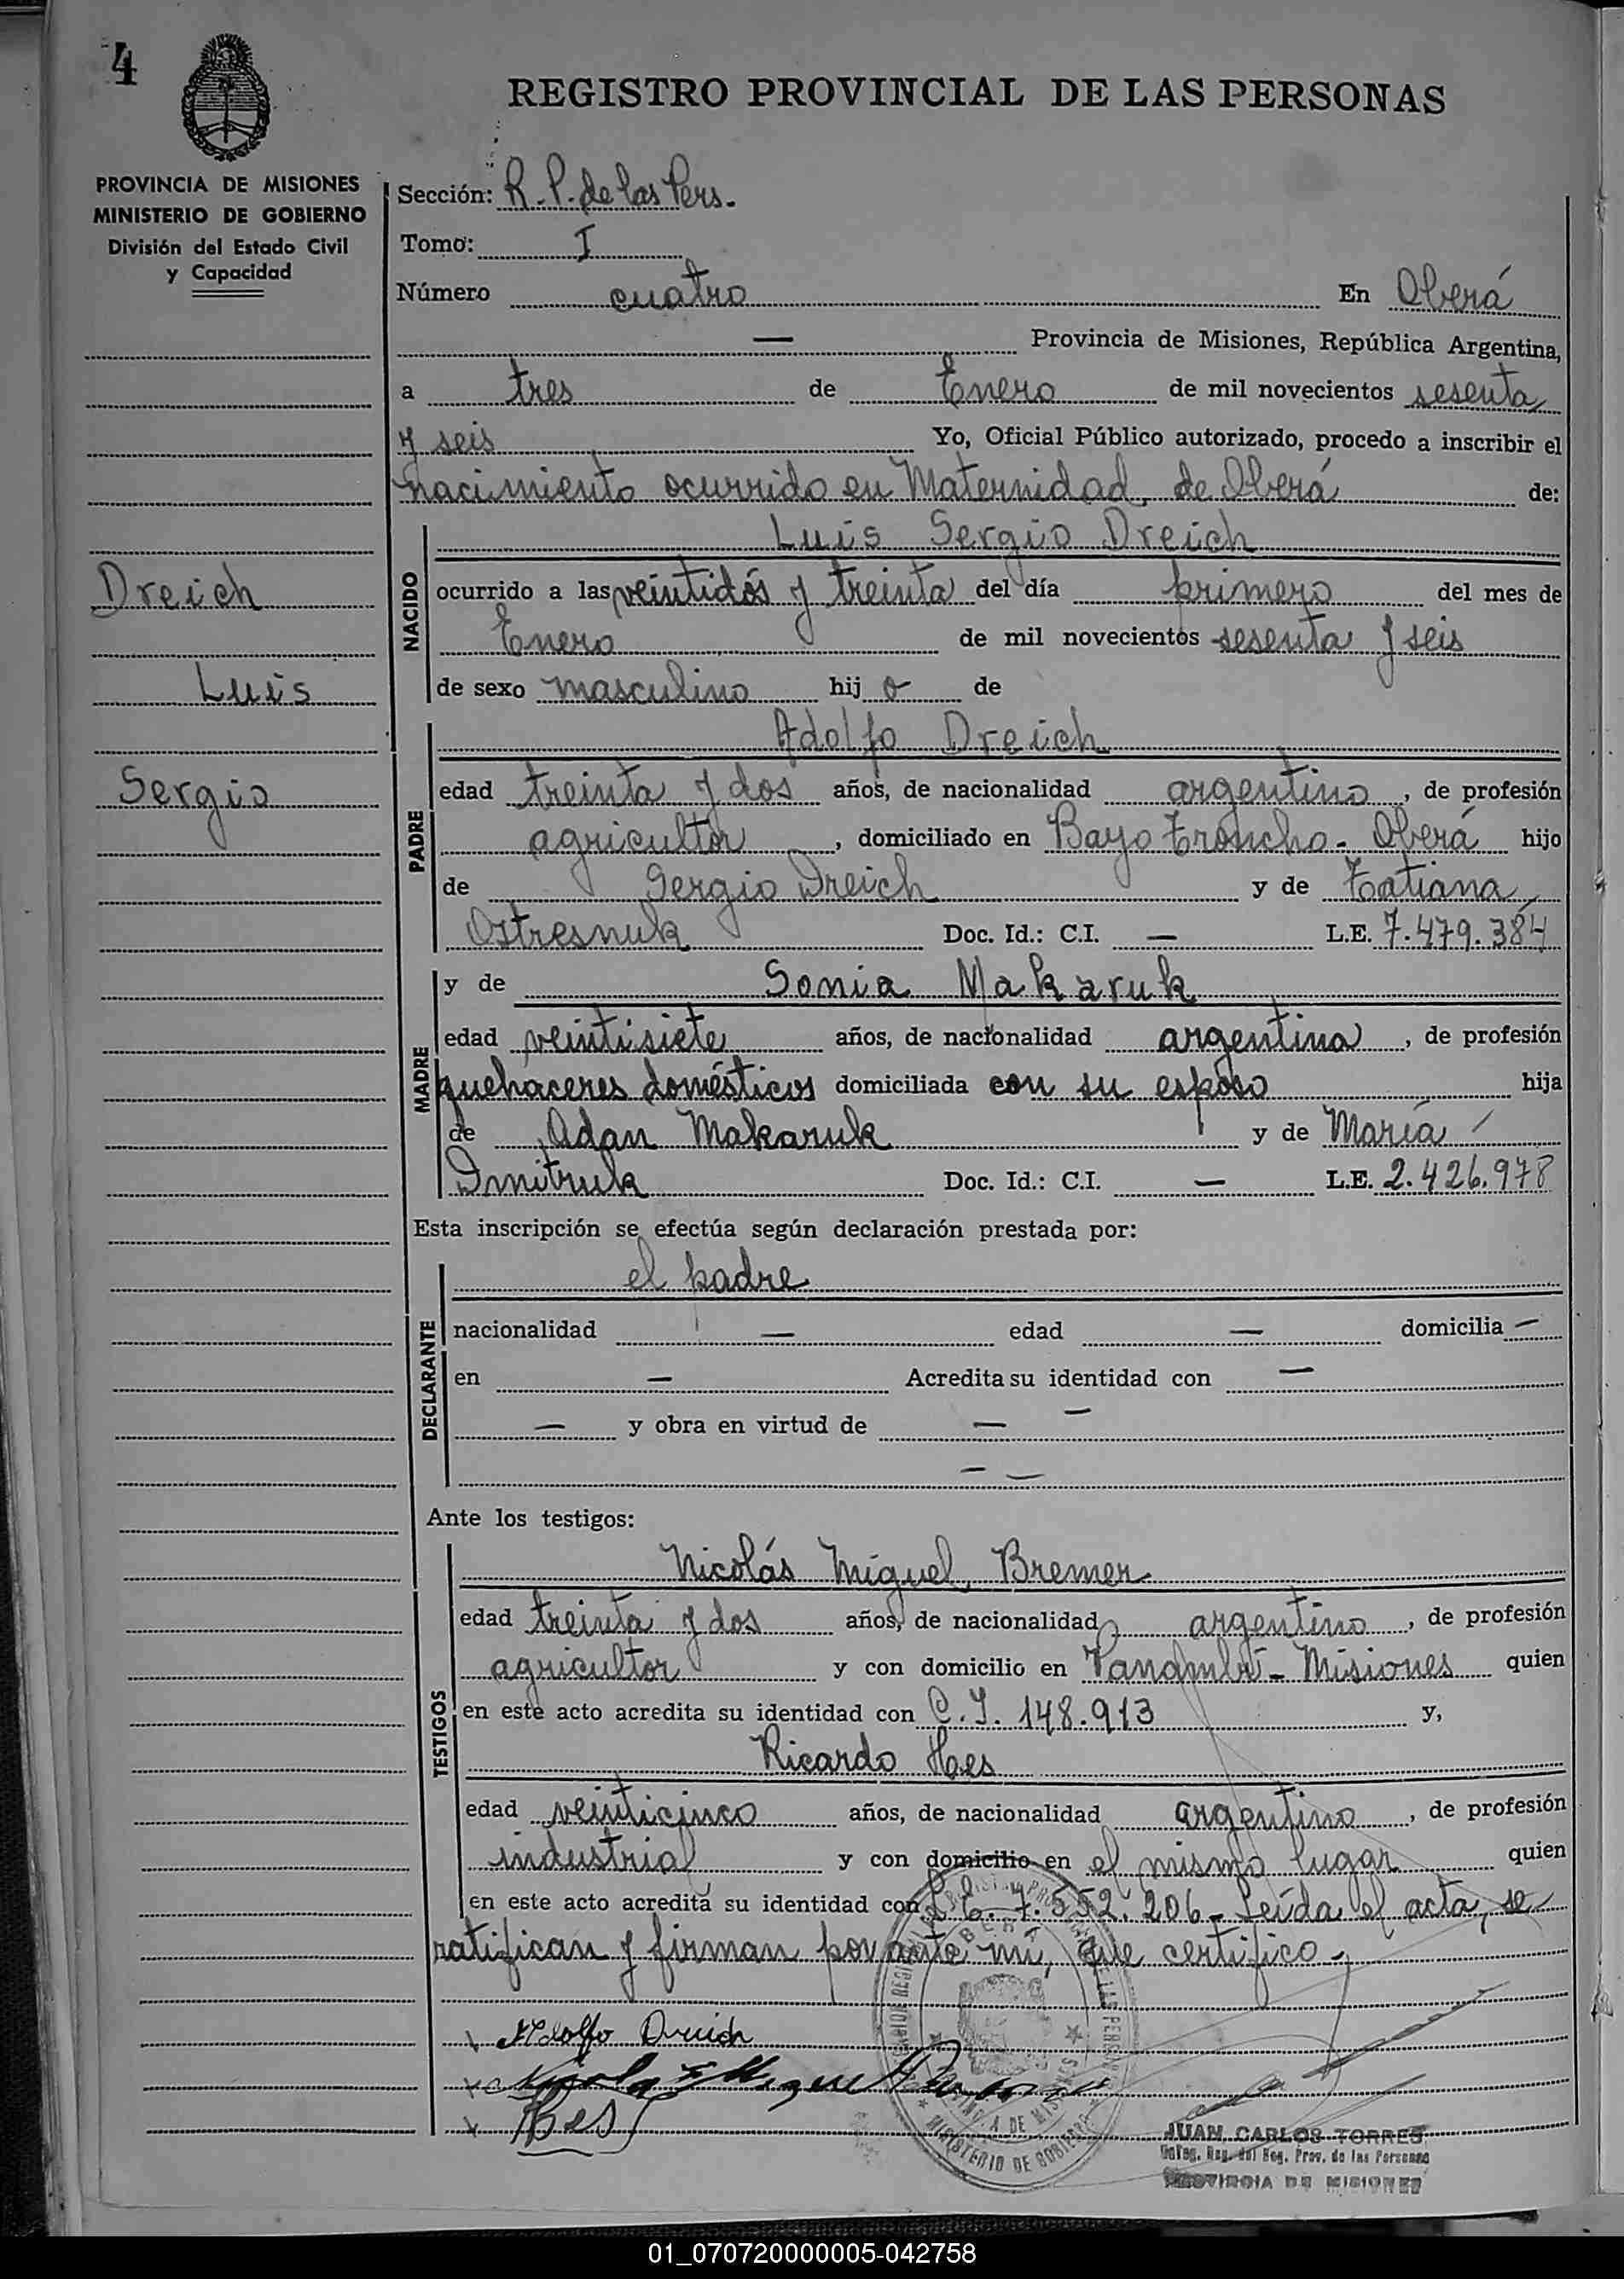 4
REGISTRO PROVINCIAL DE LAS PERSONAS
PROVINCIA DE MISIONES
MINISTERIO DE GOBIERNO
División del Estado Civil
y Capacidad
Sección: R.P. de las Pers.
Tomo: I
Número cuatro En Oberá
— Provincia de Misiones, República Argentina,
a tres de Enero de mil novecientos sesenta
y seis Yo, Oficial Público autorizado, procedo a inscribir el
nacimiento ocurrido en Maternidad de Oberá de:
Dreich
Luis
Sergio
NACIDO
Luis Sergio Dreich
ocurrido a las veintidós y treinta del día primero del mes de
Enero de mil novecientos sesenta y seis
de sexo masculino hijo de
PADRE
Adolfo Dreich
edad treinta y dos años, de nacionalidad argentino, de profesión
agricultor, domiciliado en Bayo Troncho - Oberá hijo
de Sergio Dreich y de Tatiana
Ostresnuk Doc. Id.: C.I. — L.E. 7.479.384
MADRE
y de Sonia Makaruk
edad veintisiete años, de nacionalidad argentina, de profesión
quehaceres domésticos domiciliada con su esposo hija
de Adan Makaruk y de María
Dmitruk Doc. Id.: C.I. — L.E. 2.426.978
Esta inscripción se efectúa según declaración prestada por:
DECLARANTE
el padre
nacionalidad — edad — domicilia —
en — Acredita su identidad con —
— y obra en virtud de — —
— —
Ante los testigos:
TESTIGOS
Nicolás Miguel Bremer
edad treinta y dos años, de nacionalidad argentino, de profesión
agricultor y con domicilio en Panambí - Misiones quien
en este acto acredita su identidad con C.I. 148.913 y,
Ricardo Hes
edad veinticinco años, de nacionalidad argentino, de profesión
industrial y con domicilio en el mismo lugar quien
en este acto acredita su identidad con L.E. 7.552.206 - Leída el acta, se
ratifican y firman por ante mí, que certifico -
Adolfo Dreich
Nicolas Miguel
Hes
MINISTERIO DE GOBIERNO
JUAN CARLOS TORRES
Reg. del Reg. Prov. de las Personas
PROVINCIA DE MISIONES
01_070720000005-042758